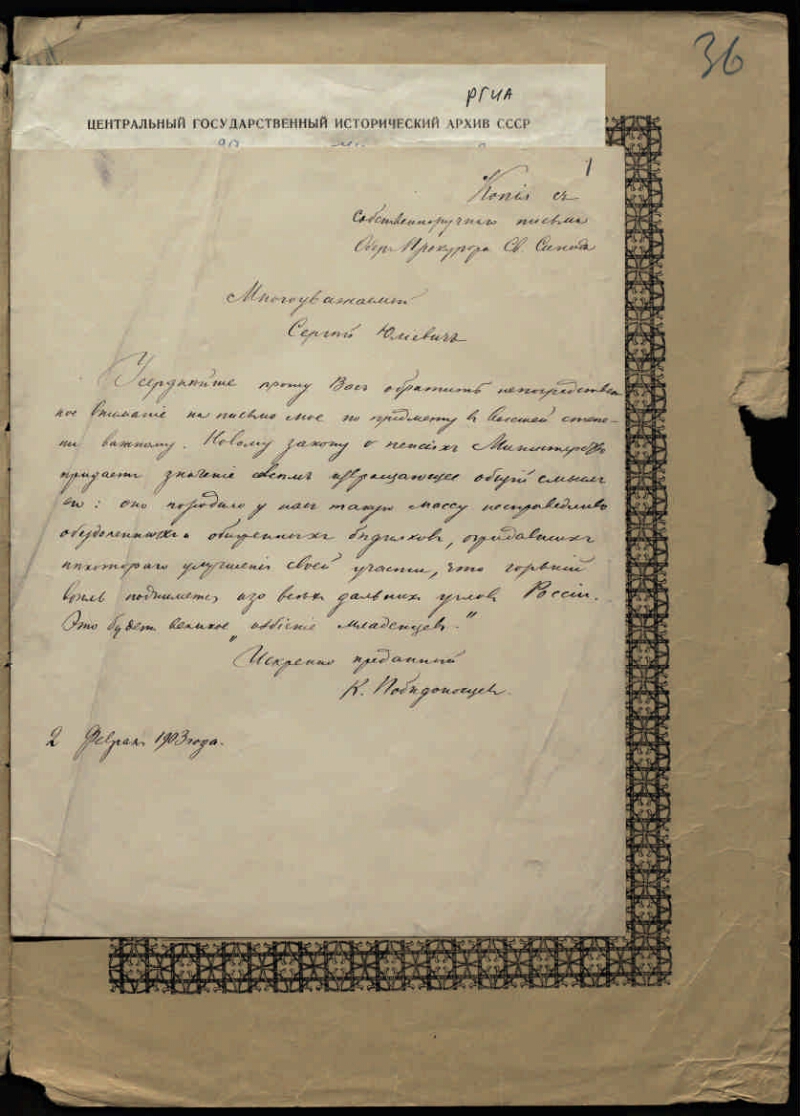 36
РГИА
ЦЕНТРАЛЬНЫЙ ГОСУДАРСТВЕННЫЙ ИСТОРИЧЕСКИЙ АРХИВ СССР
1
Копія съ
собственноручнаго письма
Обер-Прокурора Св. Синода
Многоуважаемый
Сергѣй Юліевичъ
Усерднѣйше прошу Васъ обратить непосредствен
ное вниманіе на письмо мое по предмету в высшей степе-
ни важному. Новому закону о пенсіяхъ Министерство
придаетъ значеніе совсѣмъ извращающее общій смыслъ
его: оно породило у насъ такую массу несправедливо
обездоленныхъ и обиженныхъ бѣдняковъ, ожидавшихъ
нѣкотораго улучшенія своей участи, что горькій
вопль поднимется изо всѣхъ дальнихъ угловъ Россіи.
Это будетъ великое "избіеніе младенцевъ."
Искренно преданный
К. Побѣдоносцевъ.
2 Февраля 1903 года.